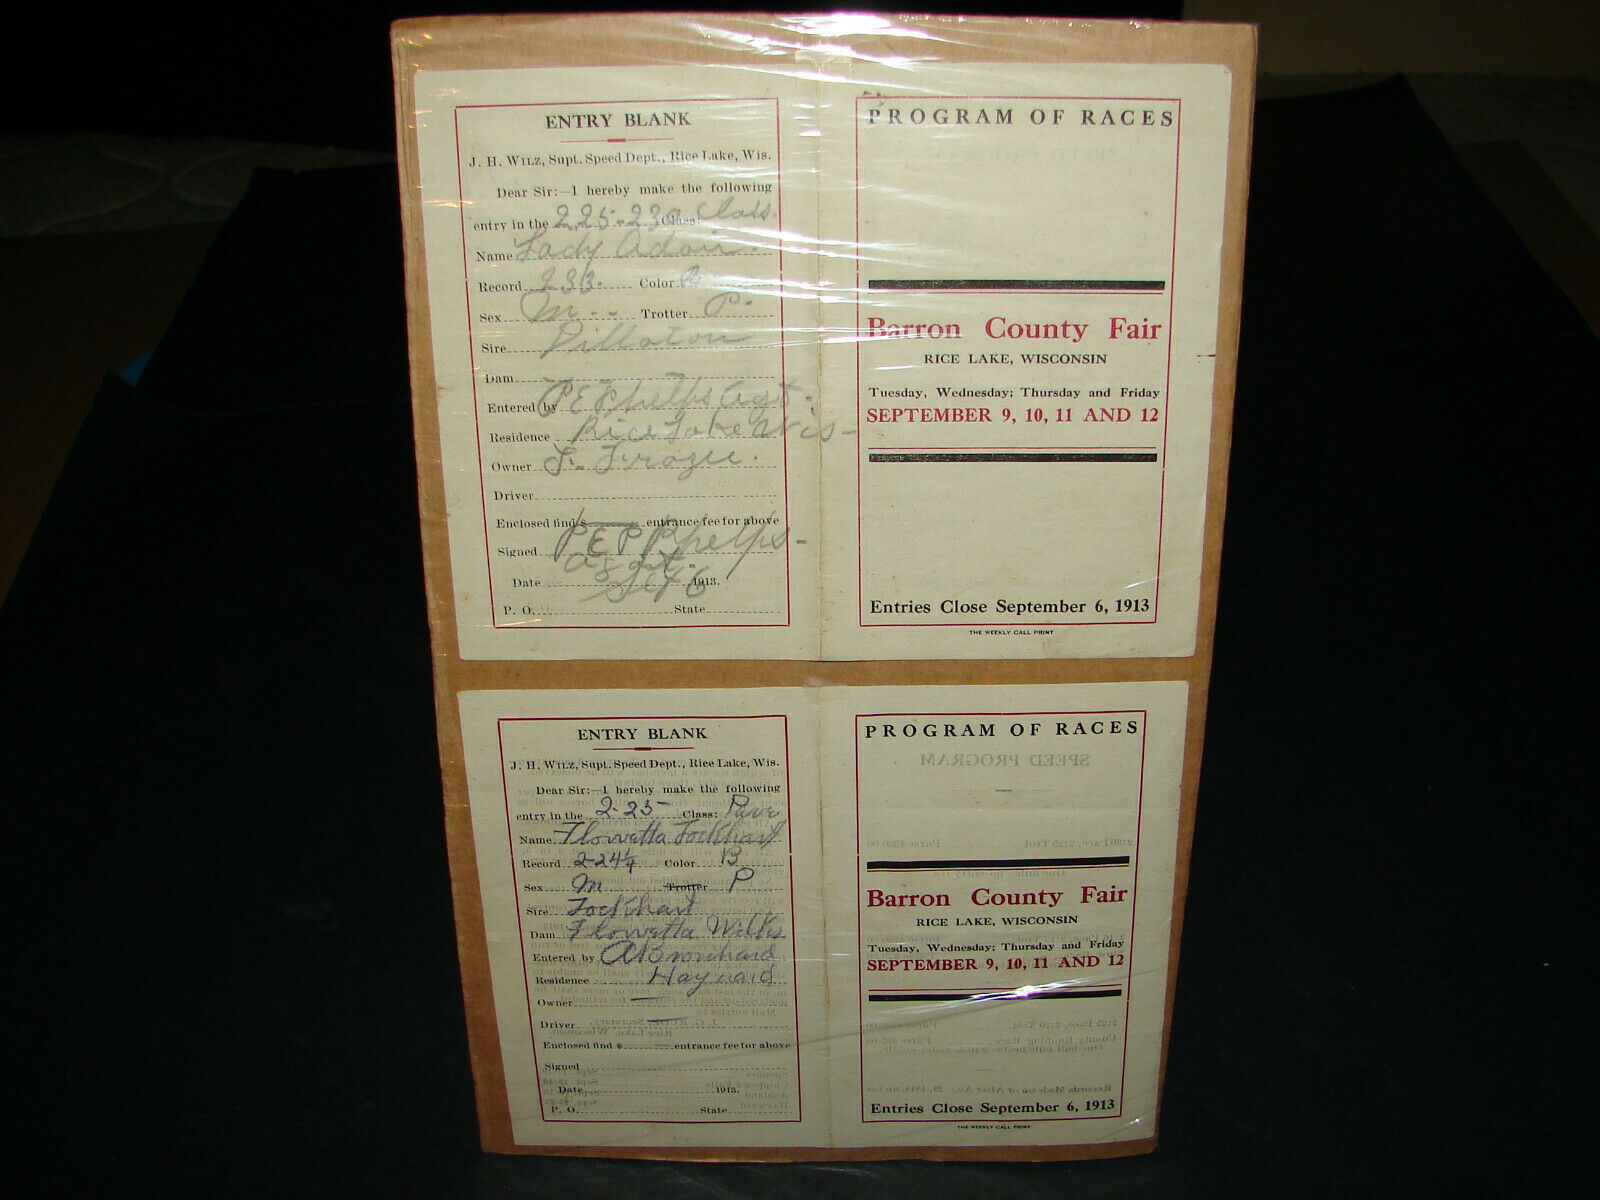 ENTRY BLANK
J. H. WILZ, Supt. Speed Dept., Rice Lake, Wis.
Dear Sir:—I hereby make the following
entry in the 2.25-230 Class: Class.
Name Lady Adair.
Record 233. Color B
Sex M -- Trotter P.
Sire Dillaton
Dam
Entered by P E Phelps Agt.
Residence Rice Lake Wis -
Owner
Driver
Enclosed find $ entrance fee for above
Signed P E P Phelps -
agt.
Date Sept 6 1913.
P. O. State
PROGRAM OF RACES
Barron County Fair
RICE LAKE, WISCONSIN
Tuesday, Wednesday; Thursday and Friday
SEPTEMBER 9, 10, 11 AND 12
Entries Close September 6, 1913
THE WEEKLY CALL PRINT
ENTRY BLANK
J. H. WILZ, Supt. Speed Dept., Rice Lake, Wis.
Dear Sir:—I hereby make the following
entry in the 2-25 Class: Pace
Name Flowretta Lockhart
Record 2-24¼ Color B
Sex M Trotter P
Sire Lockhart
Dam Flowretta Wilkes
Entered by
Residence Hayward
Owner —
Driver —
Enclosed find $ — entrance fee for above
Signed
Date 1913.
P. O. State
PROGRAM OF RACES
SPEED PROGRAM
Barron County Fair
RICE LAKE, WISCONSIN
Tuesday, Wednesday; Thursday and Friday
SEPTEMBER 9, 10, 11 AND 12
Entries Close September 6, 1913
THE WEEKLY CALL PRINT